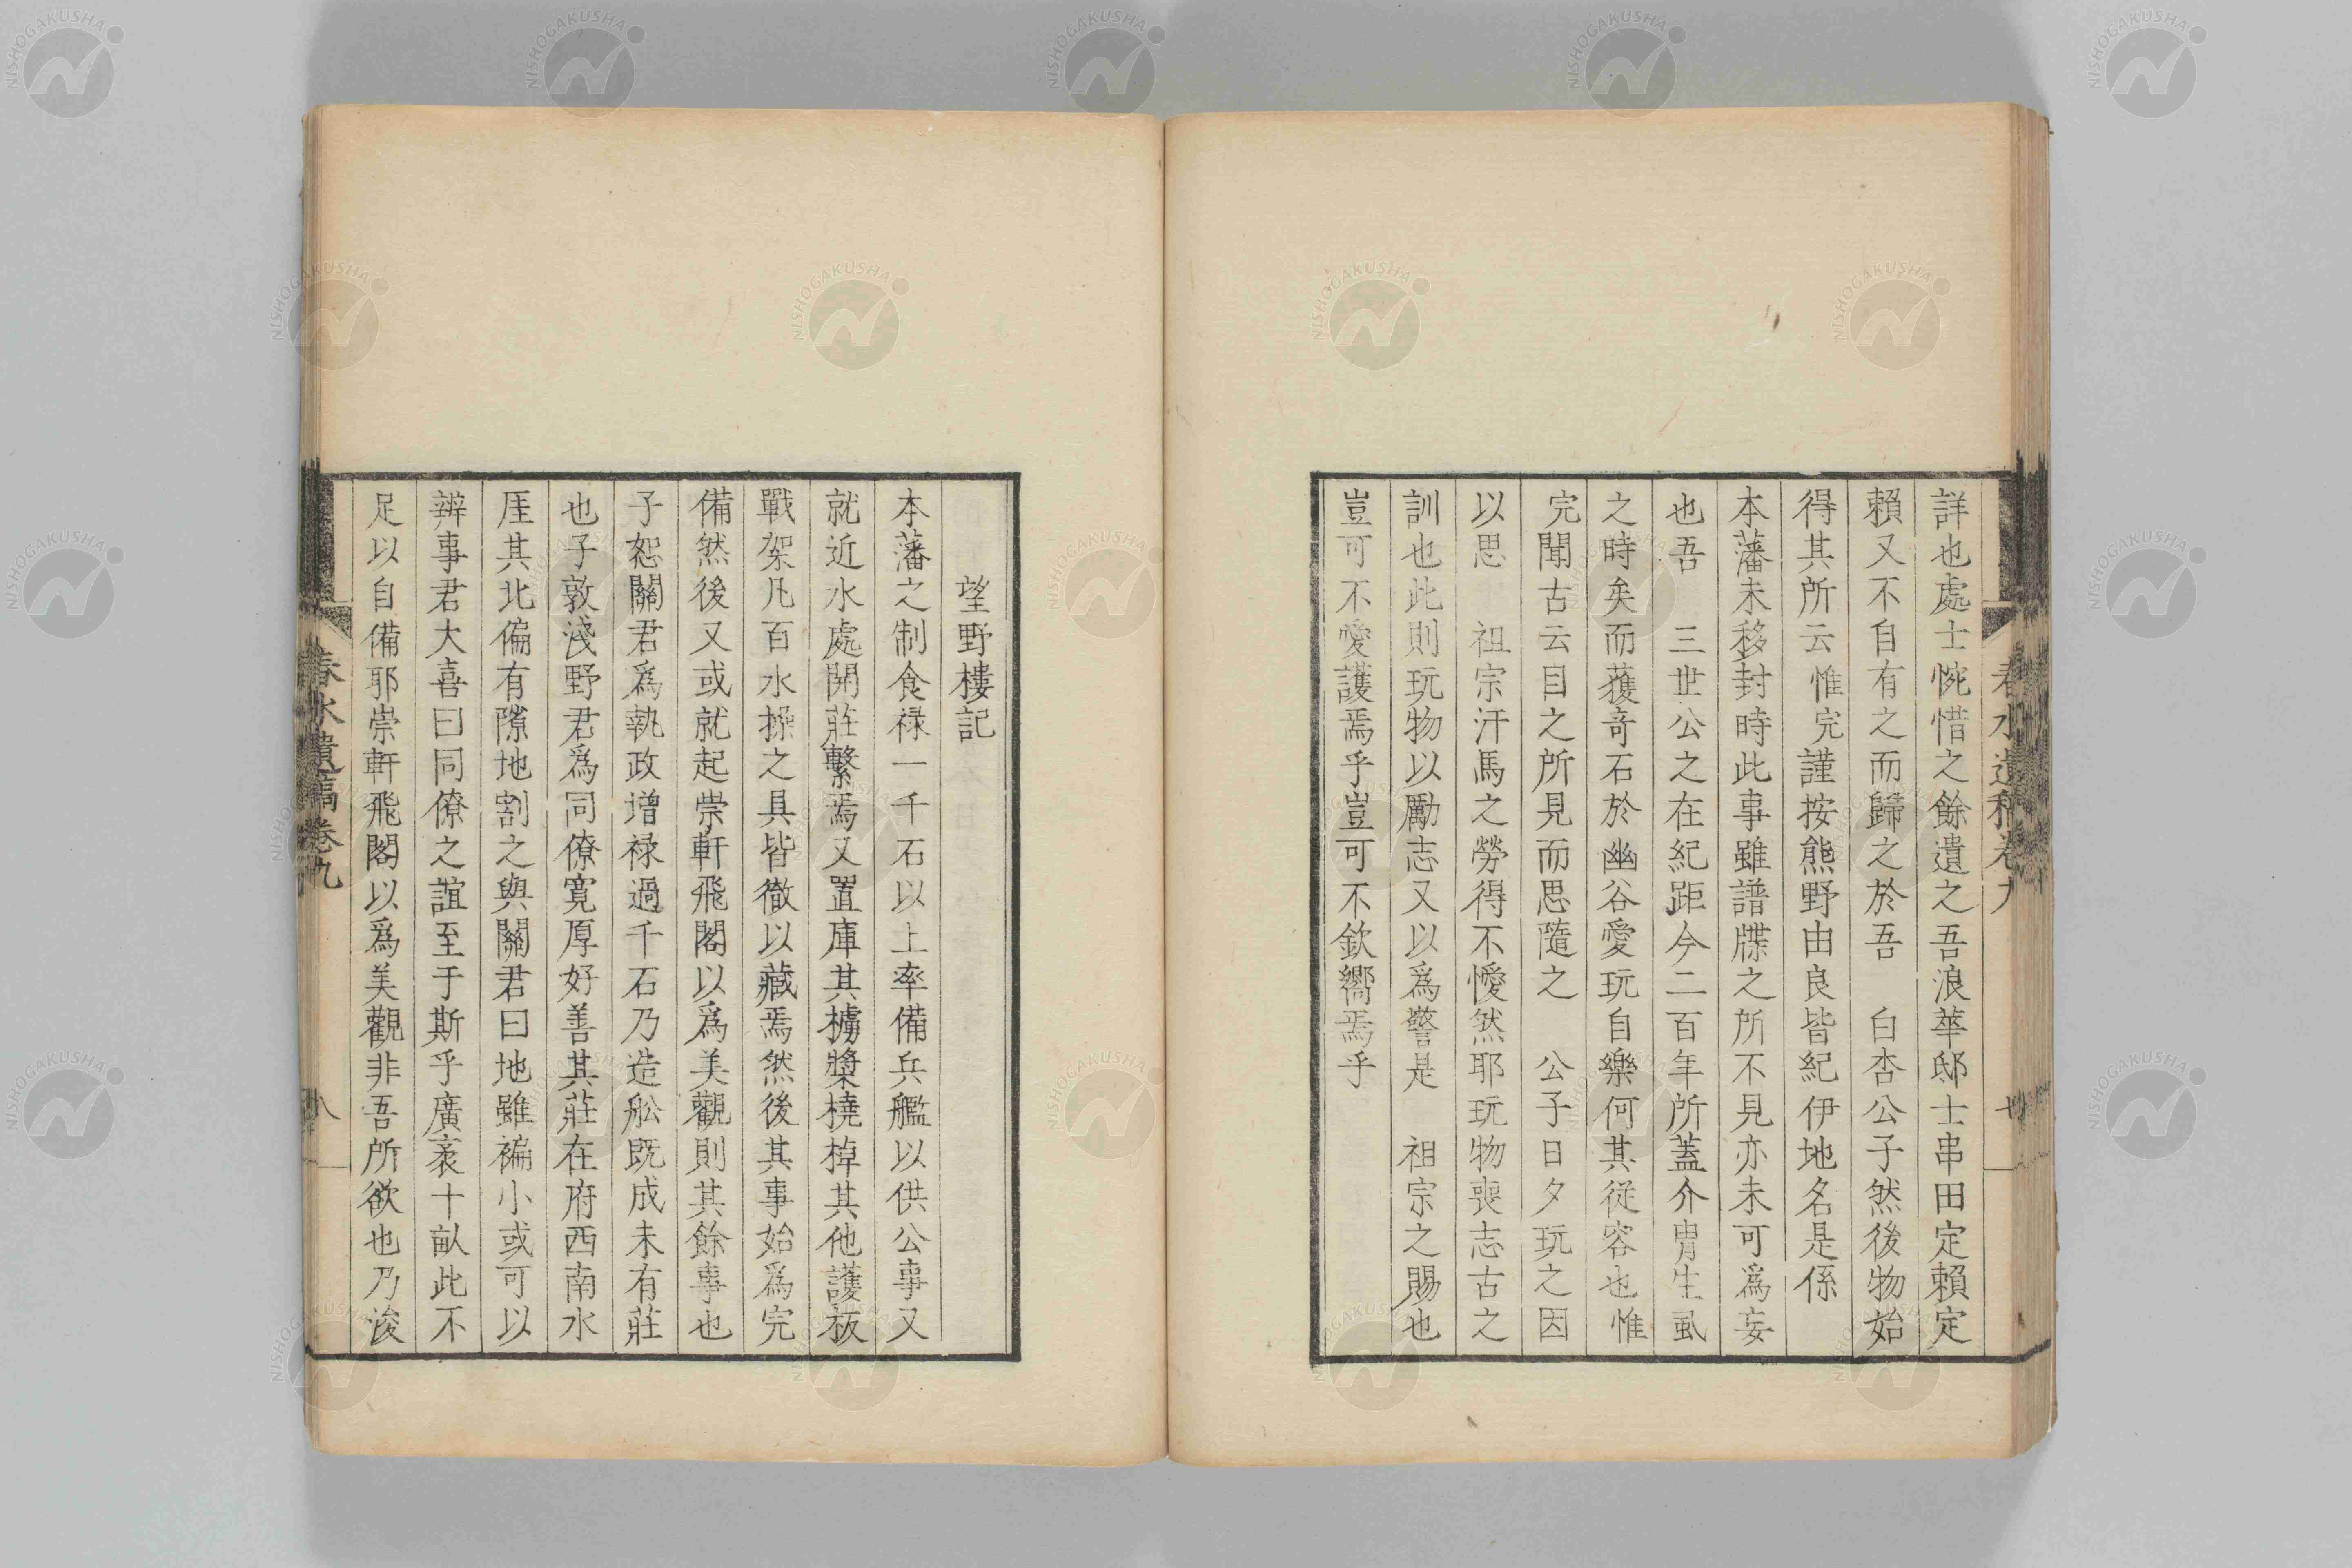 詳也處士惋惜之餘遺之吾浪華邸士串田定賴定
賴又不自有之而歸之於吾　白杏公子然後物始
得其所云惟完謹按熊野由良皆紀伊地名是係
本藩未移封時此事雖譜牒之所不見亦未可爲妄
也吾　三世公之在紀距今二百年所蓋介冑生虱
之時矣而獲奇石於幽谷愛玩自樂何其從容也惟
完聞古云目之所見而思隨之　公子日夕玩之因
以思　祖宗汗馬之勞得不懓然耶玩物喪志古之
訓也此則玩物以勵志又以爲警是　祖宗之賜也
豈可不愛護焉乎豈可不欽嚮焉乎
春水遺稿卷九　七
望野樓記
本藩之制食禄一千石以上率備兵艦以供公事又
就近水處開莊繫焉又置庫其擄槳橈棹其他護板
戰架凡百水操之具皆徹以藏焉然後其事始爲完
備然後又或就起崇軒飛閣以爲美觀則其餘事也
子恕關君爲執政增禄過千石乃造舩既成未有莊
也子敦淺野君爲同僚寛厚好善其莊在府西南水
厓其北偏有隙地割之與關君曰地雖褊小或可以
辨事君大喜曰同僚之誼至于斯乎廣袤十畝此不
足以自備耶崇軒飛閣以爲美觀非吾所欲也乃浚
春水遺稿卷九　八
NISHOGAKUSHA